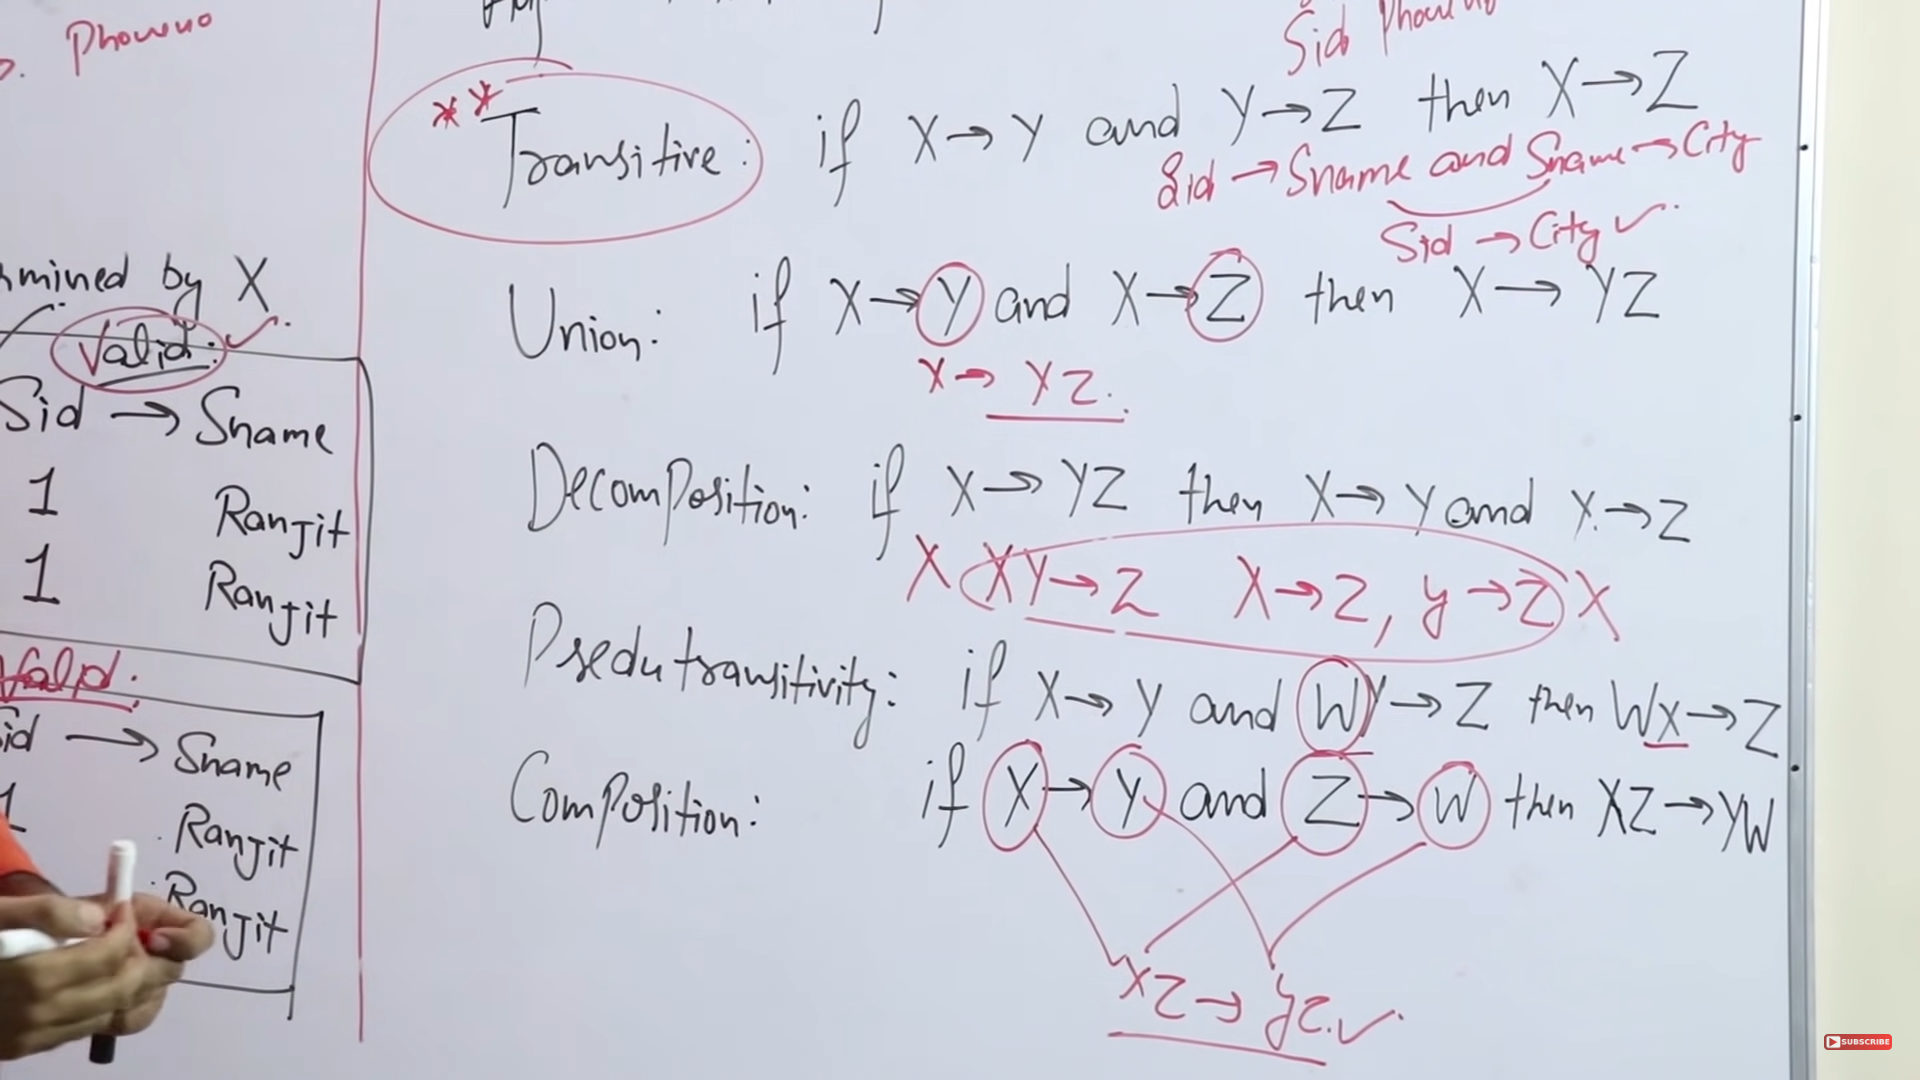 Phoneno
rmined by X
Valid:
Sid → Sname
1 Ranjit
1 Ranjit
Valid:
Sid → Sname
1 Ranjit
Ranjit
Sid Phoneno
** Transitive: if X→Y and Y→Z then X→Z
Sid → Sname and Sname → City
Sid → City ✓
Union: if X→Y and X→Z then X→YZ
X→ YZ.
Decomposition: if X→YZ then X→Y and X→Z
X XY→Z X→Z, y→Z X
Psedutransitivity: if X→Y and WY→Z then WX→Z
Composition: if X→Y and Z→W then XZ→YW
XZ → YZ. ✓
SUBSCRIBE